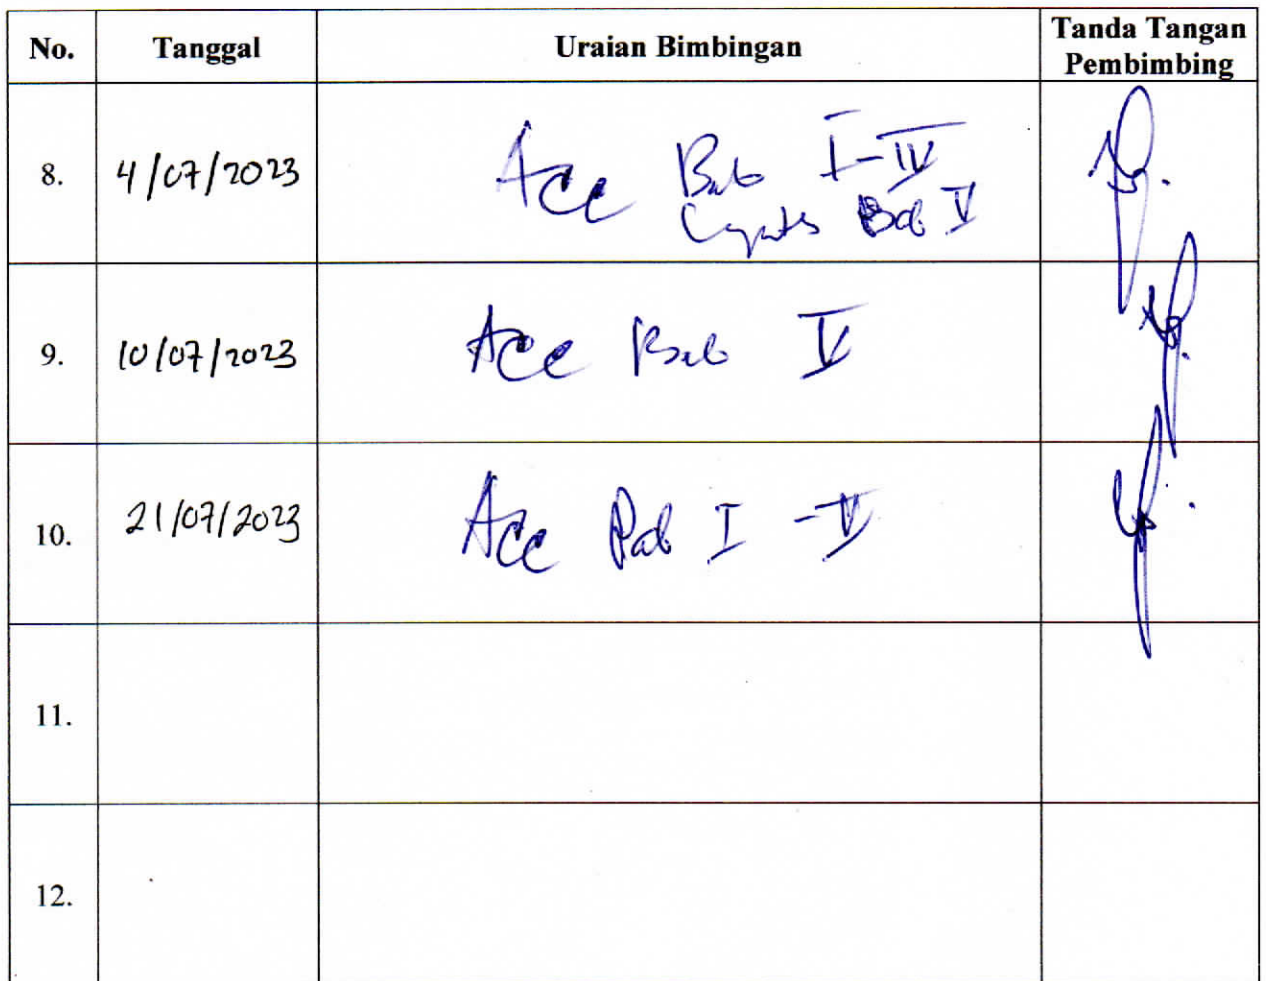 No. Tanggal Uraian Bimbingan Tanda Tangan
Pembimbing
8. 4/07/2023 Acc Bab I-IV
Bab V
9. 10/07/2023 Acc Bab V
10. 21/07/2023 Acc Bab I - V
11.
12.